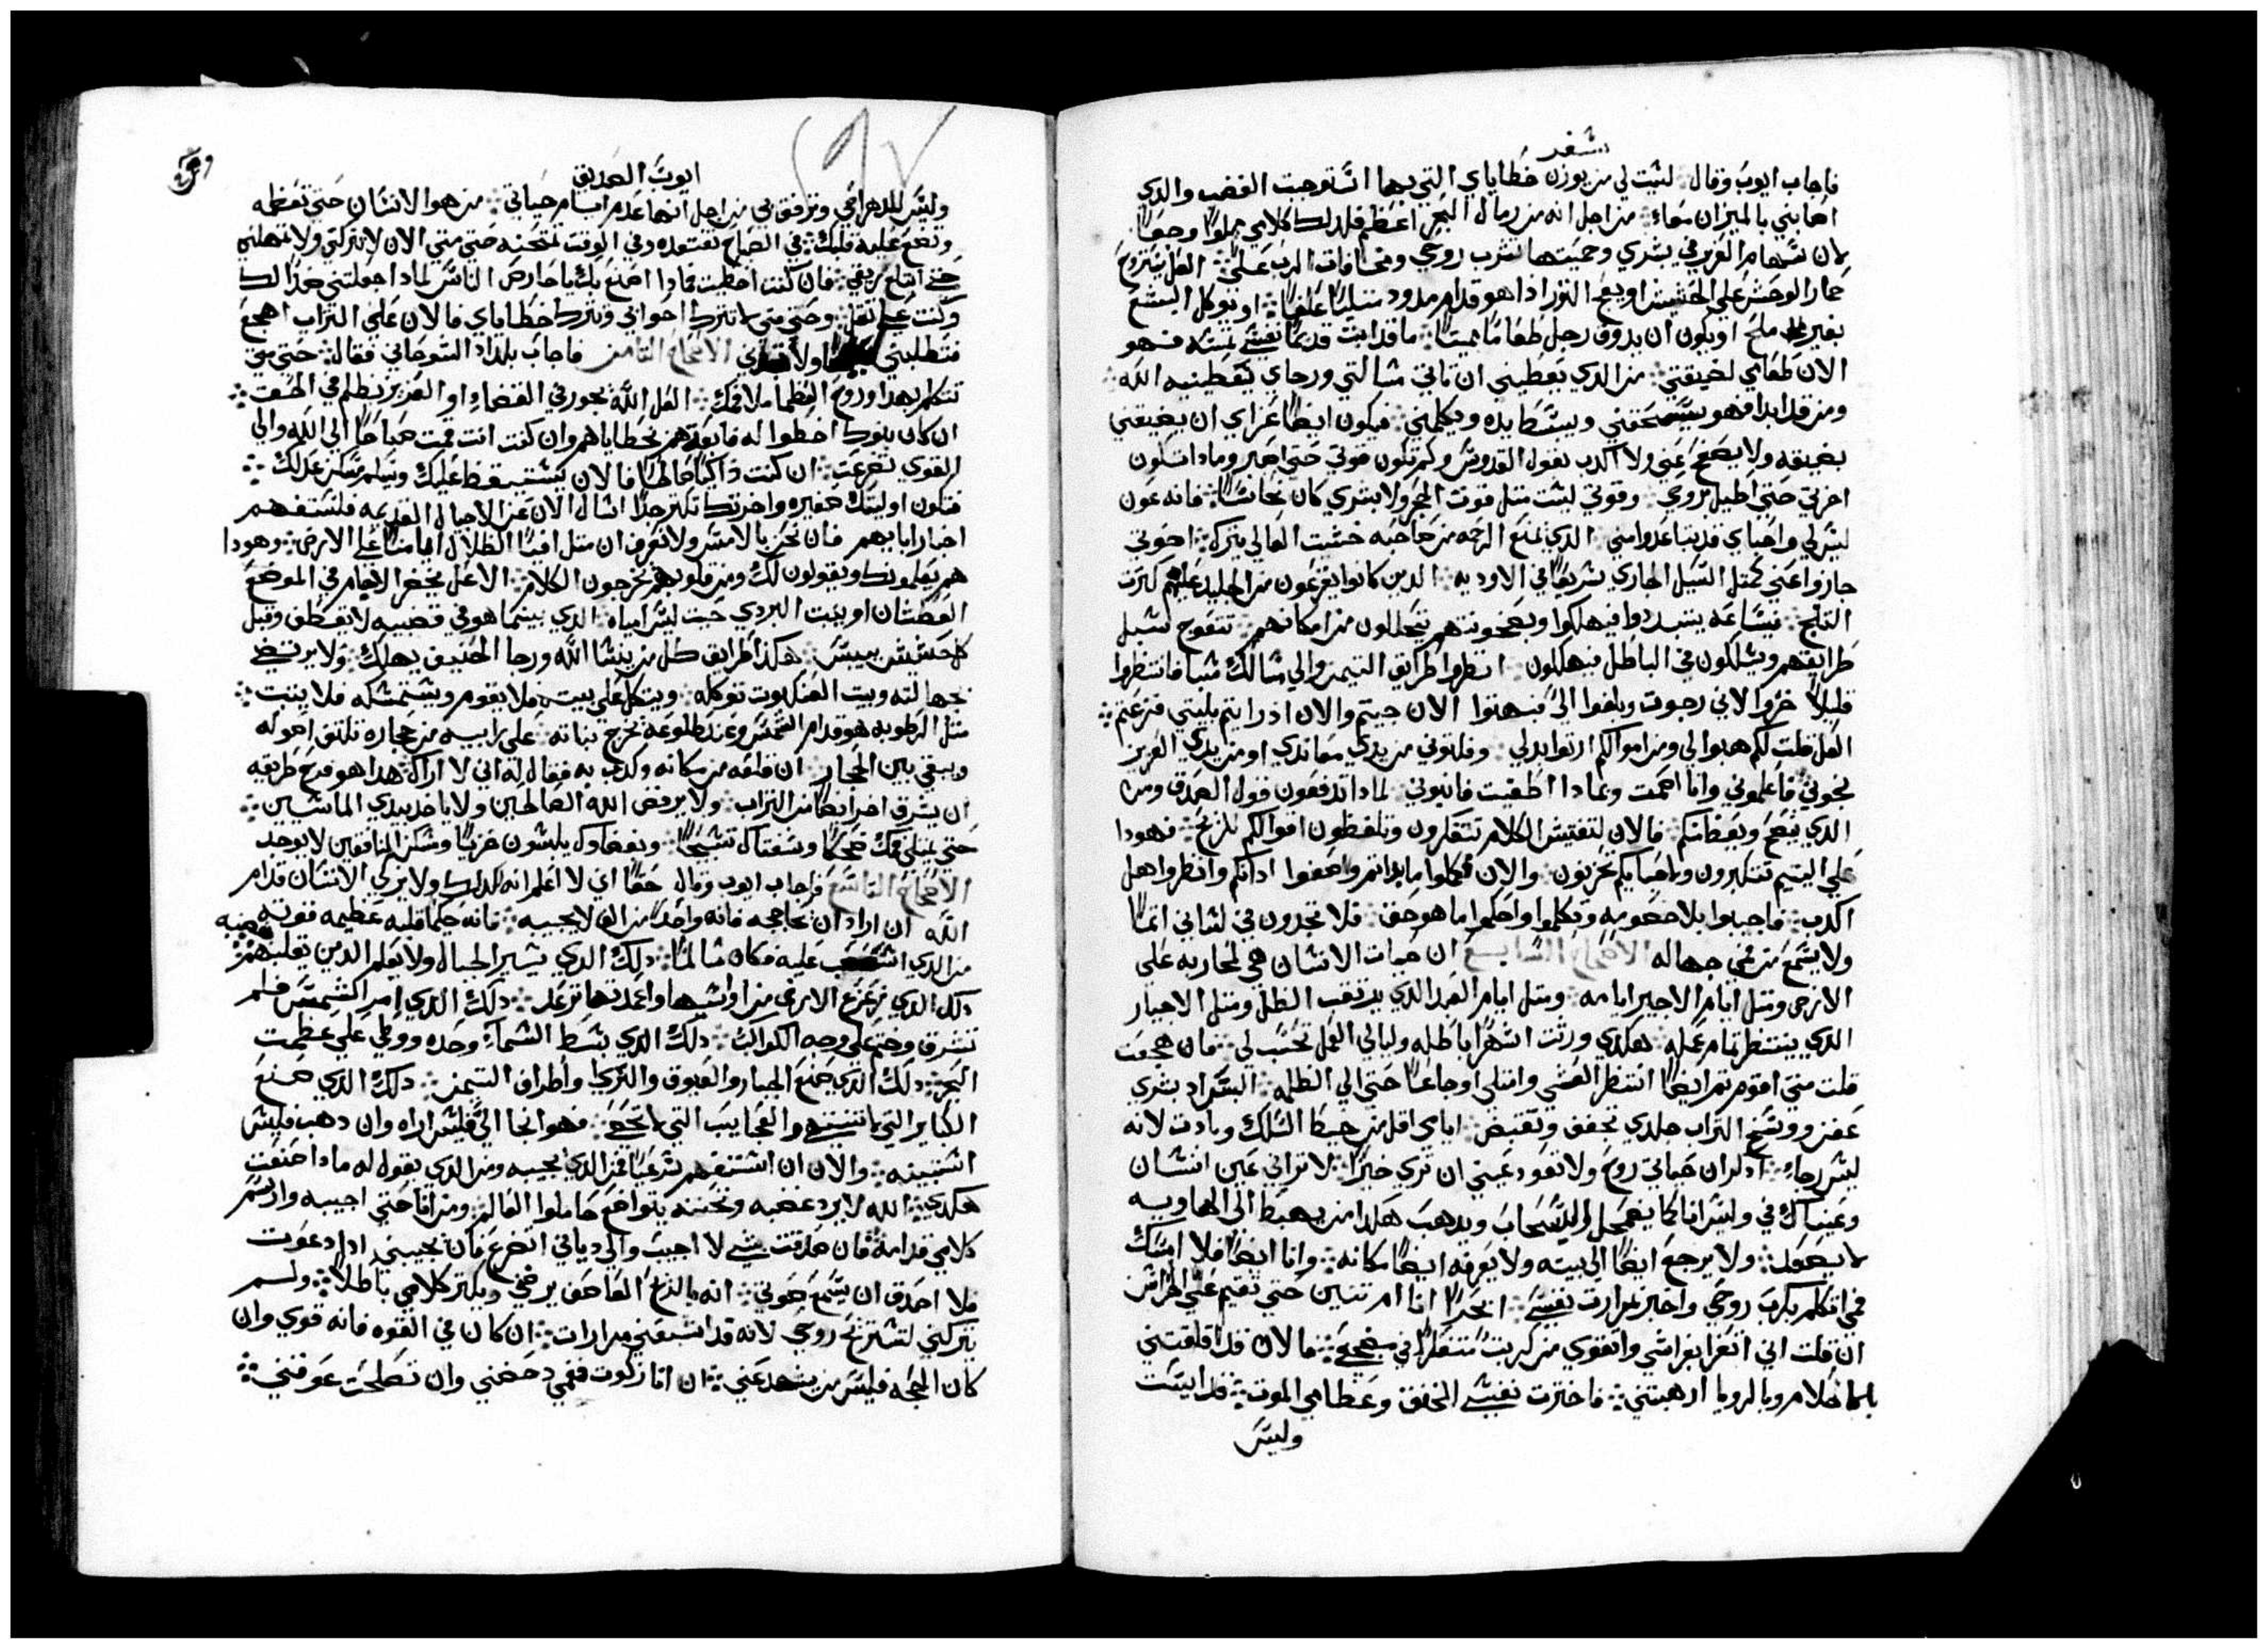 سفر
فاجاب ايوب وقال ليت لي من يوزن خطاياي التي بها استوجبت الغضب والذي
اصابني بالميزان سواء من اجل انه من رمال البحر اعظم فلذلك كلامي مملوا وجعا
لان سهام العزيز في بشري وحميتها تشرب روحي ومخافات الرب علي العل يتروح
حمار الوحش على الحشيش او يعج الثور اذا هو قدام مدود ممتليا علفا او يتوكل البشع
بغير ملح او يكون ان يدوق رجل طعاما مميتا ما قد ابت قديما نفسي تمسه فهو
الان طعامي لضيقتي من الذي يعطيني ان تاتي مسالتي ورجاي يعطينيه الله
ومن قد ابدا فهو يسحقني ويبسط يده ويكلمني فيكون ايضا عزاي ان يضيقني
بضيقه ولا يصفح عني ولا اكدب بقول القدوس وكم تكون قوتي حتى اصبر وماذا تكون
اخرتي حتى اطيل روحي وقوتي ليست مثل قوت الحجر ولا بشري كان نحاسا فانه عون
ليس لي واحباي قد تباعدوا مني الذي يمنع الرحمه من صاحبه خشيت العالي يترك اخوتي
جازوا عني كمثل السيل الجاري سريعا في الاوديه الذين كانوا يفزعون من الجليد عليهم كثرت
الثلج فبساعه يتبددوا فيهلكوا وبضحونتهم يتحللون من امكانهم تتعوج سبل
طرايقهم ويسلكون في الباطل فيهلكون انظروا طرايق التيمن والي مسالك سبا فانتظروا
قليلا خزوا لاني رجوت وبلغوا الى فبهتوا الان جيتم والان اذ رايتم بليتي فزعتم
العل قلت لكم هبوا لي ومن اموالكم ارتوا بدلي وفلتوني من يدي معاندي او من يدي العزيز
نجوني فاعلموني وانا اصمت وبماذا اطغيت فانبوني لماذا تدفعون قول الصدق ومن
الذي ينصح ويعظ منكم فالان لتفتيش الكلام تتفكرون وتلفظون اقوالكم للريح فهوذا
على اليتيم تتكبرون واحبابكم تحزنون والان فكملوا ما بداتم واصغوا اذانكم وانظروا هل
اكدب فاجيبوا بلا خصومه وتكلموا واحكموا ما هو حق فلا تجدون في لساني اثما
ولا يسمع من فمي جهاله الاصحاح السابع ان حيات الانسان هي لمحاربه على
الارض ومثل ايام الاجير ايامه ومثل ايام العبد الذي يرتقب الظل ومثل الاجير
الذي ينتظر تمام عمله هكذي ورثت اشهرا باطله وليالي العمل تحسب لي فان هجعت
قلت متى اقوم ثم ايضا انتظر العشى وامتلي اوجاعا حتى الي الظلمه البس رداد بشري
عفن ووسخ التراب جلدي تجفف وتقبض ايامي اقل من خيط السلك وبادت لانه
ليس رجاء اذكر ان حياتي روح ولا تعود عيني ان ترى خيرا لا تراني عين انسان
وعيناك في وليس انا كما يضمحل السحاب ويذهب هكذا من يهبط الى الهاويه
لا يصعد ولا يرجع ايضا الى بيته ولا يعرفه ايضا مكانه وانا ايضا فلا امسك
فمي اتكلم بكرب روحي واخبر بمرارت نفسي ابحرا انا ام تنين حتى تقيم علي الحراس
ان قلت اني اتعزا بفراشي واتقوى من كربت متفكرا في مضجعي فالان قد اقلقتني
بالاحلام وبالرويا ارهبتني فاختارت نفسي الخنق وعظامي الموت قد ايست
وليس
ايوب الصديق
وليس للدهر احي وترفق بي من اجل انها عدم ايام حياتي من هو الانسان حتى تعظمه
وتضع عليه قلبك في الصباح تفتقده وفي الوقت تمتحنه حتى متى الان لا تتركني ولا تمهلني
حتى ابتلع ريقي فان كنت اخطيت فماذا اصنع بك يا حارص الناس لماذا جعلتني ضدا لك
وكنت علي ثقل وحتى متى لا تترك اخواتي وتترك خطاياي فالان على التراب اهجع
فتطلبني ولا تجدني الاصحاح الثامن فاجاب بلداد السوحاني فقال حتى متى
تتكلم بهذا وروح العظما ملا فمك العل الله يجور في القضاء او العزيز يظلم في الحق
ان كان بنوك اخطوا له فابعدهم بخطاياهم وان كنت انت قمت صباحا الى الله والى
القوي تضرعت ان كنت ذاكيا صالحا فالان يستيقظ عليك ويسلم مسكن عدلك
فتكون اوليتك حقيره واخرتك تكثر جدا اسال الان عن الاجيال القديمه فلتستفهم
اخبار ابايهم فان نحن بالامس ولا نعرف ان مثل افيا الظلال ايامنا على الارض وهوذا
هم يعلموك ويقولون لك ومن قلوبهم يخرجون الكلام الاعل يخضر البقام في الموضع
العطشان او ينبت البردي حيت ليس مياه الذي بينما هو في قضيبه لا يقطف وقبل
كل حشيش ييبس هكذا طرايق كل من ينسا الله ورجا الحنيف يهلك ولا يرتضى
بجهالته وبيت العنكبوت توكله ويتكل على بيته فلا يقوم ويستمسكه فلا يثبت
مثل الرطوبه هو قدام الشمس وعند طلوعه تخرج نباته على رابيه من حجاره تلتف اصوله
ويبقى بين الحجار ان قلعه من مكانه وكذب به فقال له اني لا اراك هذا هو فرح طريقه
ان يشرق اخر ايضا من التراب ولا يرفض الله الصالحين ولا ياخذ بيدي الماشين
حتى يمتلي فمك ضحكا وشفتاك تسبيحا وبغضاوك يلبسون خزيا ومسكن المنافقين لا يوجد
الاصحاح التاسع فاجاب ايوب وقال حقا اني لا اعلم انه كذلك ولا يزكي الانسان قدام
الله ان اراد ان يحاججه فانه واحدا من الف لا يجيبه فانه حكما قلبه عظيمه قوته
من الذي استصعب عليه فكان سالما ذلك الذي يسير الجبال ولا يعلم الذين يقلبهم بغضبه
ذلك الذي يزعزع الارض من اواسها واعمدتها ترعد ذلك الذي امر الشمس فلم
تشرق وختم على وجه الكواكب ذلك الذي بسط السماء وحده ووطي على عظمت
البحر ذلك الذي صنع الجبار والعيوق والثريا واطراف التيمن ذلك الذي صنع
الكباير التي لا تنتهي والعجايب التي لا تحصى فهو انجا الي فليس اراه وان ذهب فليس
استبينه والان ان استفهم سرعيا فمن الذي يجيبه ومن الذي يقول له ماذا صنعت
هكذي الله لا يرد غضبه وتحته يتواضع حاملوا العالم ومن انا حتى اجيبه وارسم
كلامي قدامه فان صدقت شي لا اجيب والى دياني اتضرع فان يجيبني اذا دعوت
فلا اصدق ان يسمع صوتي انه بالذع العاصف يرضني ويكثر كلامي باطلا ولم
يتركني لتستريح روحي لانه قد اشبعني مرارات ان كان في القوه فانه قوي وان
كان الحجه فليس من يشهد عني ان انا زكوت ففمي دحضني وان تصلحت عوقني